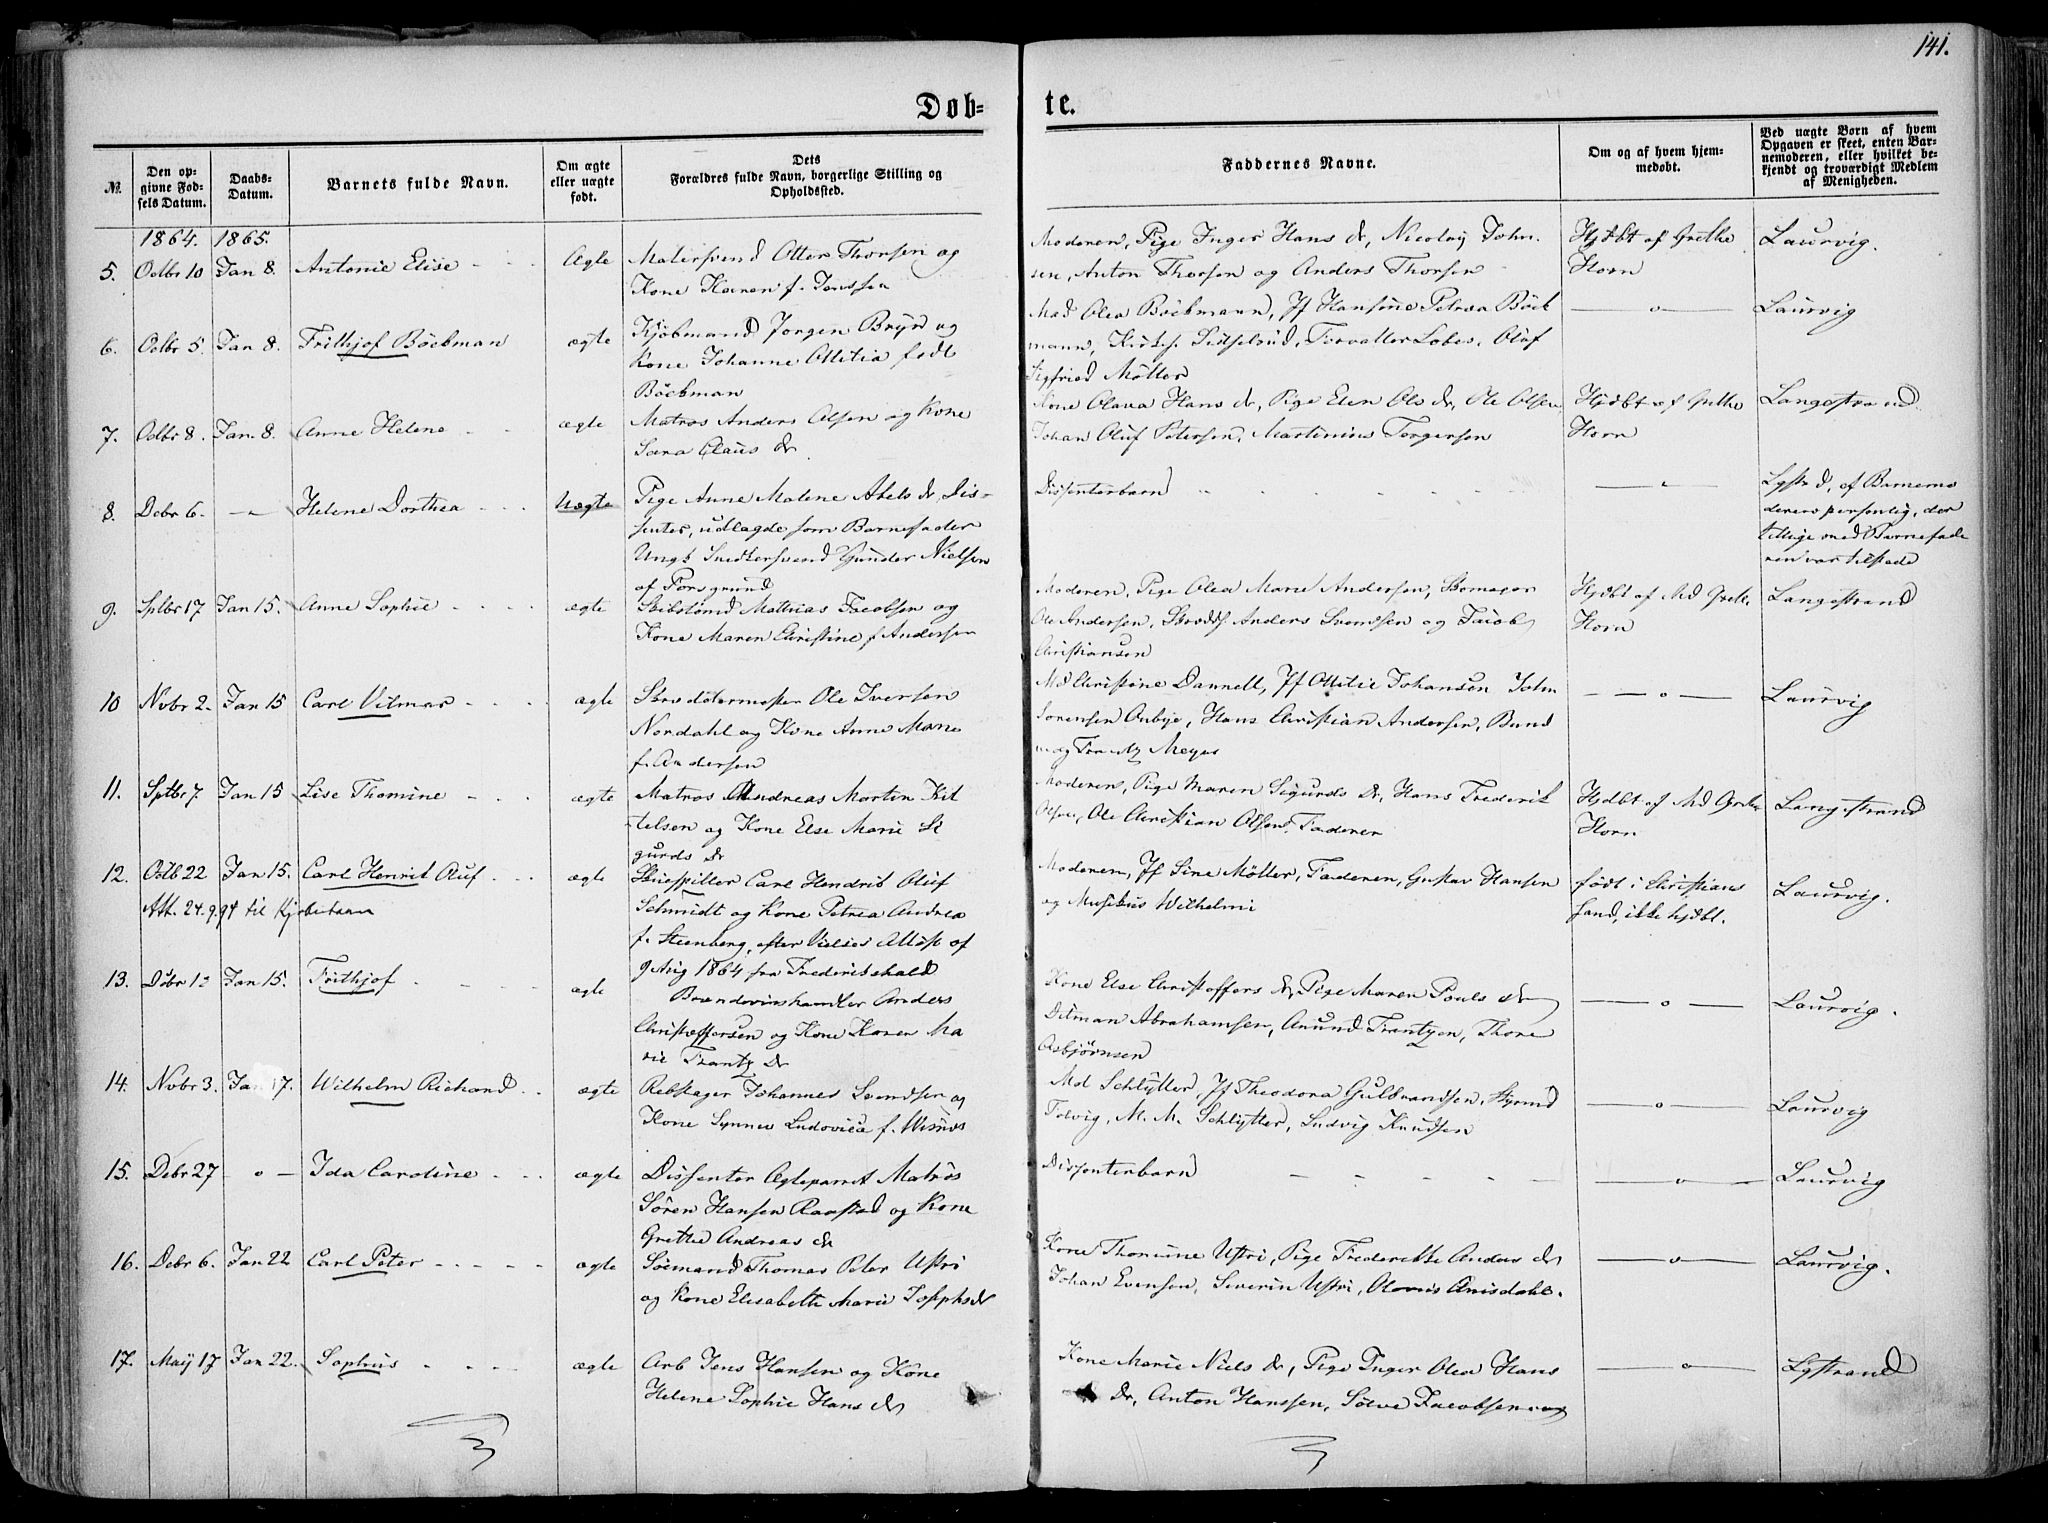 141.
Døb-
te.
№.
Den op-
givne Fød-
sels Datum.
Daabs-
Datum.
Barnets fulde Navn.
Om ægte
eller uægte
født.
Dets
Forældres fulde Navn, borgerlige Stilling og
Opholdssted.
Faddernes Navne.
Om og af hvem hjem-
medøbt.
Ved uægte Børn af hvem
Opgaven er skeet, enten Bar-
nemoderen, eller hvilket be-
kjendt og troværdigt Medlem
af Menigheden.
1864. 1865.
5. Octbr 10 Jan 8. Antonie Elise - - Ægte
Malersvend Otter Thorsen og
Kone Karen f. Jenssen
Moderen, Pige Inger Hans dr, Nicolay John-
sen, Anton Thorsen og Anders Thorsen
Hjdbt af Grethe
Horn
Laurvig.
6. Octbr 5. Jan 8. Frithjof Böckman ægte
Kjøbmand Jørgen Bryn og
Kone Johanne Ottilia født
Böckman
Mad Olea Böckmann, Jf Hansine Petrea Böck
mann, Forvalter Lobes, Oluf
Sigfried Møller
— o —
Laurvig
7. Octbr 8. Jan. 8. Anne Helene - - ægte
Matros Anders Olsen og Kone
Sara Claus dr
Kone Olava Hans dr, Pige Elen Ols dr, Ole Olsen
Johan Oluf Petersen, Martinius Torgersen
Hjdbt af Grethe
Horn
Langestrand
8. Debr 6. — Helene Dorthea - - - Uægte
Pige Anne Malene Abels dr, Dis-
senter, udlagde som Barnefader
Ungk Snedkersvend Gunder Nielsen
af Porsgrund
Dissenterbarn
Lgstrd, af Barnemo
deren personlig, der
tillige med Barnefade
ren var tilstede
9. Sptbr 17 Jan 15. Anne Sophie - - - - ægte
Skibstømd Mathias Jacobsen og
Kone Maren Christine f. Andersen
Moderen, Pige Olea Marie Andersen, Skomager
Ole Andersen, Skrædds Anders Svendsen og Jacob
Christiansen
Hjdbt af Md Grethe
Horn
Langestrand
10 Novbr 2. Jan 15 Carl Vilmar - - - - ægte
Skreddermester Ole Iversen
Nordahl og Kone Anne Marie
f. Andersen
Md Christine Dannell, Jf Ottilie Johansen John
Sørensen Aubye, Hans Christian Andersen, Bund
mag Frantz Meyer
— o —
Laurvig
11. Sptbr 7. Jan 15 Lise Thomine - - - ægte
Matros Andreas Martin Kit
telsen og Kone Else Marie Si
gurds dr
Moderen, Pige Maren Sigurds dr, Hans Frederik
Olsen, Ole Christian Olsen, Faderen
Hjdbt af Md Grethe
Horn
Langestrand
12. Octb 22 Jan 15. Carl Henrik Oluf - - - ægte
Att. 24.9.94 til Kjøbenhavn
Skuespiller Carl Hendrik Oluf
Schmidt og Kone Petrea Andrea
f. Steenberg, efter Vielses Attest af
9 Aug 1864 fra Frederikshald
Moderen, Jf Sine Møller, Faderen, Gustav Hansen
og Musikus Wilhelmi
født i Christians
sand, ikke hjdbt.
Laurvig.
13. Dcbr 12 Jan 15. Frithjof - - - - ægte
Brændevinshandler Anders
Christoffersen og Kone Karen Ma
rie Frantz dr
Kone Else Christoffers dr, Pige Maren Pouls dr
Ditman Abrahamsen, Anund Frantzen, Thore
Asbjørnsen
— o —
Laurvig.
14. Novbr 3. Jan 17. Wilhelm Richard - - ægte
Rebslager Johannes Svendsen og
Kone Synnev Ludovica f.
Md Schlytter, Jf Theodora Gulbrandsen, Styrmd
Tolvig, M. M. Schlytter, Ludvig Knudsen
— o —
Laurvig
15. Debr 27 - o - Ida Caroline - - - ægte
Dissenter Ægteparret Matros
Søren Hansen Raastad og Kone
Grethe Andreas dr
Dissenterbarn - - - - -
— o —
Laurvig
16. Debr 6. Jan 22 Carl Peter - - - - - ægte
Sømand Thomas Peter Ustri
og Kone Elisabeth Marie Josephsdr
Kone Thomine Ustri, Pige Frederikke Anders dr
Johan Evensen, Severin Ustri,
— o —
Laurvig.
17. Maij 17 Jan 22. Sophus - - - - ægte
Arb Jens Hansen og Kone
Helene Sophie Hans dr
Kone Marie Niels dr, Pige Inger Olea Hans
dr, Anton Hanssen, Sølve Jacobsen
— o —
Lgstrand